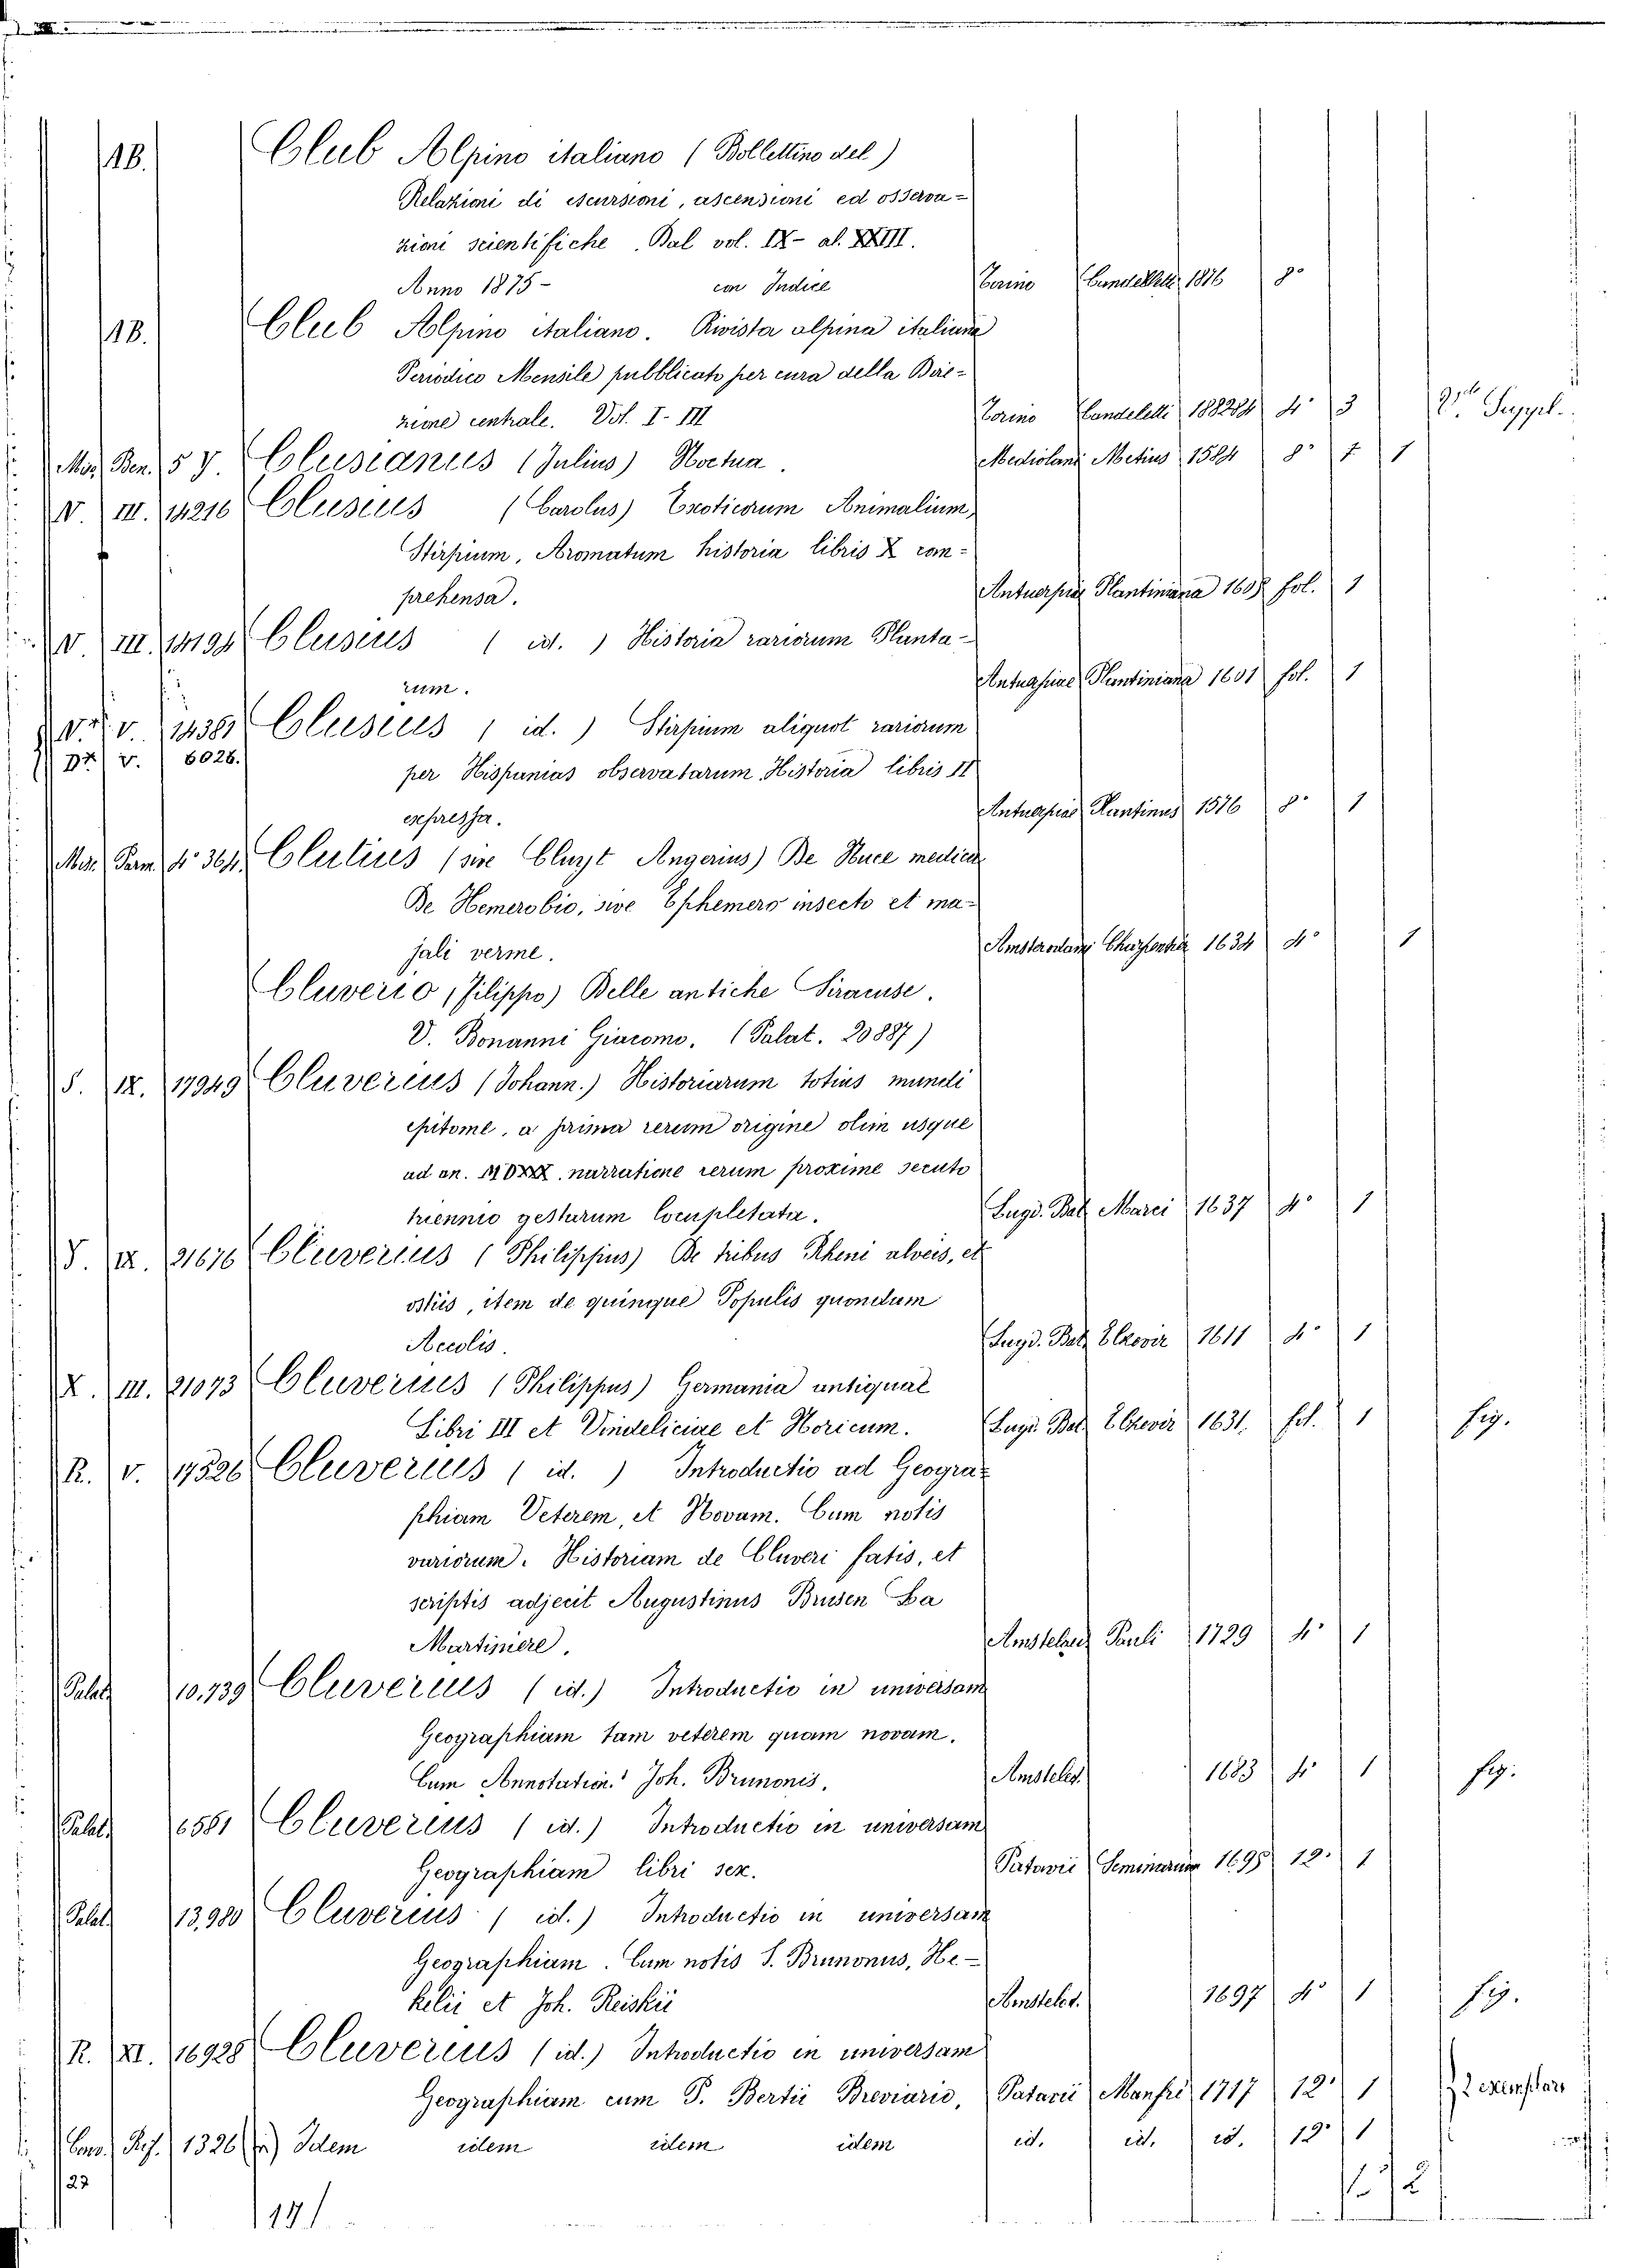 18. Club Alpino italiano (Bollettino del)
Relazioni di escursioni, ascensioni ed osserva-
zioni scientifiche. Dal vol. IX- al. XXIII.
Anno 1875- con Indice Torino Candeletti 1876 8°
18. Club Alpino italiano. Rivista alpina italiana
Periodico Mensile pubblicato per cura della Dire-
zione centrale. Vol. I-III Torino Candeletti 188284 4° 3 Suppl.
Mos. Ben. 5 Y. Clusianus (Julius) Noctua. Mediolani Metius 1584 8° 1
V. III. 14216 Clusius (Carolus) Exoticorum Animalium,
Stirpium, Aromatum historia libris X com-
prehensa. Antuerpiæ Plantiniana fol. 1
V III. 14194 Clusius (id.) Historia rariorum Planta-
rum. Antuerpiae Plantiniana 1601 fol. 1
V. 14381 Clusius (id.) Stirpium aliquot rariorum
V. 6026. per Hispanias observatarum Historia libris II
expressa. Antuerpiae Plantinus 1576 8° 1
4° 364. Clutius (sive Cluyt Angerius) De Nuce medica
De Hemerobio, sive Ephemero insecto et ma-
jali verme. Amsterodami Charpentier 1634 4° 1
Cluverio (Filippo) Delle antiche Siracuse.
V. Bonanni Giacomo. (Palat. 20887)
S. IX. 17949 Cluverius (Johann.) Historiarum totius mundi
epitome, a prima rerum origine olim usque
ad an. narratione rerum proxime secuto
triennio gestarum locupletata. Lugd. Bat. Marci 1637 4° 1
S. IX. 21676 Cluverius (Philippus) De tribus Rheni alveis, et
ostiis, item de quinque Populis quondam
Accolis. Lugd. Bat. Elzevir 1611 4° 1
X. III. 21073 Cluverius (Philippus) Germania antiquae
Libri III et Vindeliciae et Noricum. Lugd. Bat. Elzevir 1631. fol. 1 fig.
R. V. 17526 Cluverius (id.) Introductio ad Geogra-
phiam Veterem, et Novam. Cum notis
variorum. Historiam de Cluveri fatis, et
scriptis adjecit Augustinus Brusen La
Martiniere. Amstelaed. Pauli 1729 4° 1
Palat. 10.739 Cluverius (id.) Introductio in universam
Geographiam tam veterem quam novam.
Cum Annotation. Joh. Brunonis. Amstelod. 1683 4° 1 fig.
Palat. 6581 Cluverius (id.) Introductio in universam
Geographiam libri sex. Patavii Seminarium 1695 12° 1
Palat. 13,980 Cluverius (id.) Introductio in universam
Geographiam. Cum notis J. Brunonus, He-
kelii et Joh. Reiskii Amstelod. 1697 4° 1 fig.
R. XI. 16928 Cluverius (id.) Introductio in universam
Geographiam cum P. Bertii Breviario, Patavii Manfrè 1717 12° 1 2 exemplars
1326 Idem idem idem idem id. id. id. 12° 1
22